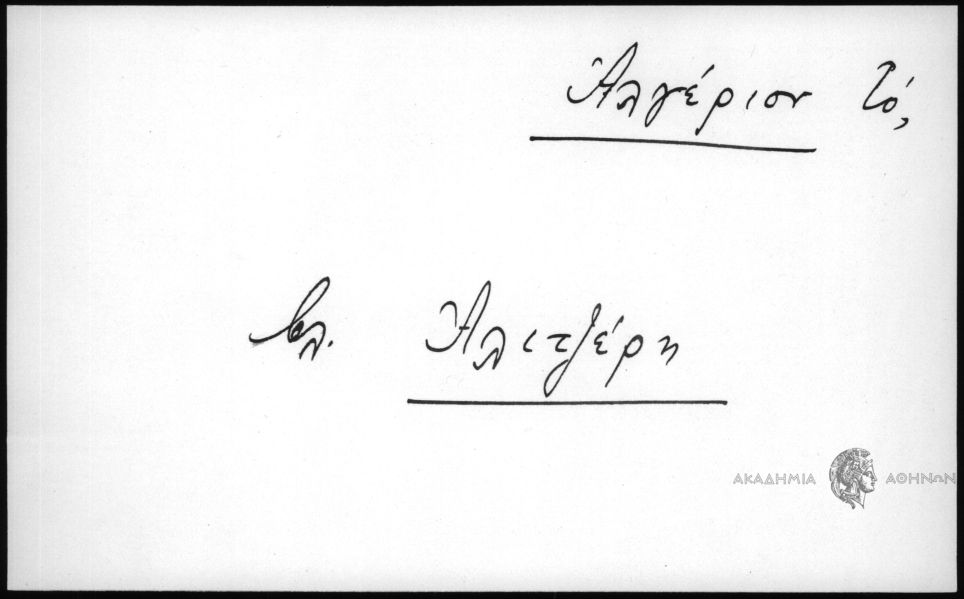 Ἀλγέριον τό,
βλ. Ἀλιτζέρη
ΑΚΑΔΗΜΙΑ ΑΘΗΝΩΝ